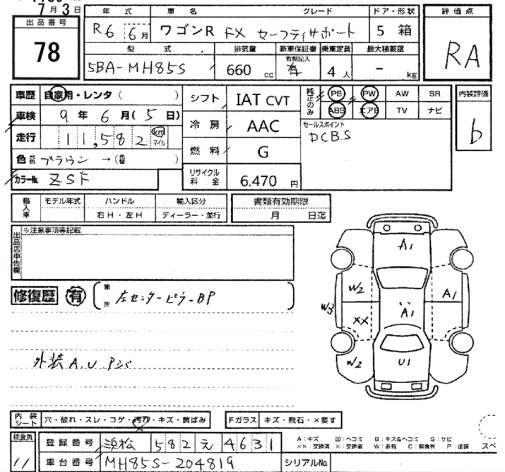 7月3日
年式 車名 グレード ドア・形状 評価点
出品番号 R6 6月 ワゴンR FX セーフティサポート 5 箱
78
型式 排気量 新車保証書 乗車定員 最大積載量
有無記入
5BA-MH85S 660 cc 有 4人 - kg RA
車歴 自家用・レンタ( ) シフト IAT CVT 純正のみ PS PW AW SR 内装評価
車検 9年6月(5日) ABS エアB TV ナビ
走行 11,582 km マイル 冷房 AAC セールスポイント b
DCBS
色 ブラウン→( ) 燃料 G
カラーNo. ZSF リサイクル料金 6.470円
輸入車 モデル年式 ハンドル 輸入区分 書類有効期限
右H・左H ディーラー・並行 月 日迄
出品店申告欄 ※注意事項等記載
A1
修復歴 有 箇所 左センターピラーBP
W2 A1 A1
W3 XX
外装A.U.Pシハ W2 U1
内装シート 穴・破れ・スレ・コゲ・汚れ・キズ・黄ばみ Fガラス キズ・飛石・×要す
検査員 登録番号 浜松 582 え 4631
11 車台番号 MH85S-204819 シリアルNo.
A:キズ U:ヘコミ B:キズ&ヘコミ S:サビ